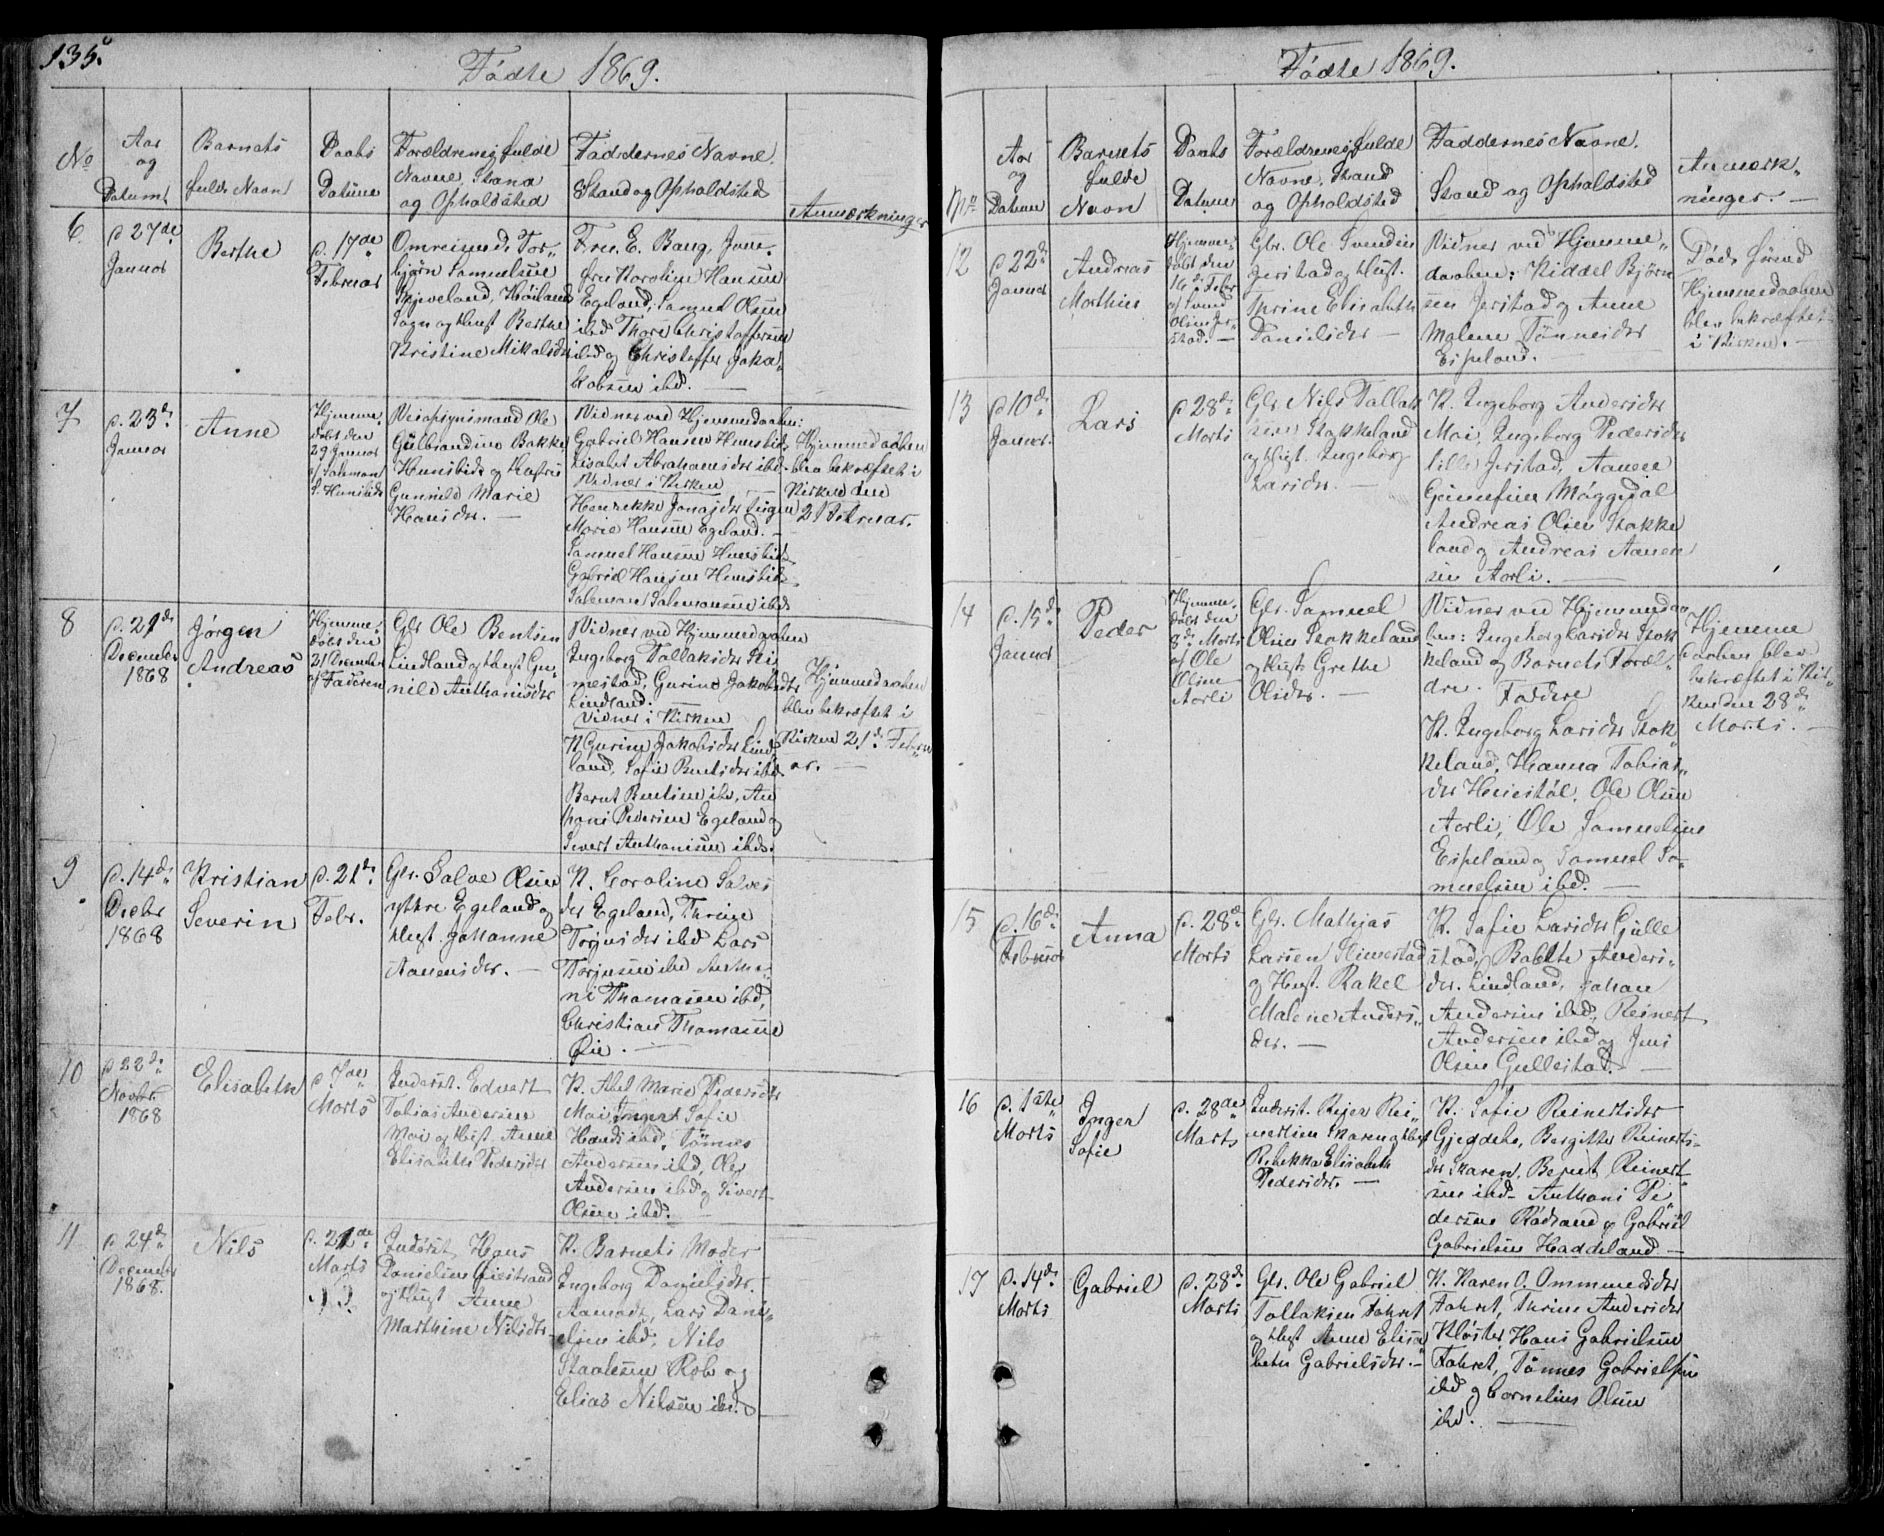 135.
Fødte 1869.
No
Aar
og
Datum
Barnets
fulde Navn
Daabs
Datum
Forældrenes fulde
Navne, Stand
og Opholdsted
Faddernes Navne.
Stand og Opholdsted
Anmærkninger
6.
d. 27de
Januar
Berthe
d. 17de
Februar
Omreisende Tor„
bjørn Samuelsen
Skjeveland, Høiland
Sogn og Hust Berthe
Kristine Mikalsdr
Fru. E. Bang, Jom„
fru Karoline Hansen
Egeland, Samuel Olsen
ibd Thore Christoffersen
ibd og Christoffer Jaka„
kobsen ibd. —
7
d. 23d.
Januar
Anne
Hjemme„
døbt den
29 Januar
af Salamon
S. Hunsbedt
Veiopsynsmand Ole
Gulbrandsen Bakke
Hunsbedt og Hustru
Gunnild Marie
Hansdr. —
Vidner ved Hjemmedaaben:
Gabriel Hansen Hunsbedt
Lisabet Abrahamsdr ibd.
Vidner i Kirken
Henrikke Jonasdr
Marie Hansen Egeland. —
Samuel Hansen Hunsbedt
Gabriel Hansen Hunsbedt
Salamon Salamonsen ibd
Hjemmedaaben
blev bekræftet i
Kirken den
21 Februar.
8
d. 21de
December
1868
Jørgen
Andreas
Hjemme„
døbt den
21 December
af Faderen
Gbr Ole Bentsen
Lindland og Hust Gu„
nild Anthonisdr
Vidner ved Hjemmedaaben
Ingeborg Tallaksdr Sli
mestad, Gurine Jakobsdr
Lindland.
Vidner i Kirken
K. Gurine Jakobsdr Lind„
land, Sofie Bentsdr ibd.
Bernt Bentsen ibd, An
thoni Pedersen Egeland og
Sivert Anthonisen ibd.
Hjemmedaaben
blev bekræftet i
Kirken 21d. Febru
ar. —
9
d. 14d.
Decbr
1868
Kristian
Severin
d. 21d.
Febr.
Gbr. Salve Olsen
ytre Egeland og
Hust. Johanne
Aanensdr. —
K. Caroline Salves
dr Egeland, Thrine
Torjusdr ibd Lars
Torjusen ibd Antho„
ni Thomasen ibd,
Christian Thomasen
Øie. —
10
d 22d.
Novbr.
1868
Elisabeth
d 7de
Marts
Inderst. Edvart
Tobias Andersen
Moi og Hust. Anne
Elisabeth Pedersdr
K. Abel Marie Pedersdr
Moi, Inger Sofie
Hansdr ibd, Tønnes
Andersen ibd, Ole
Andersen ibd og Sivert
Olsen ibd.
11
d 24d.
December
1868.
Nils
d. 21de
Marts
Inderst Hans
Danielsen
og Hust Anne
Marthine Nilsdr
K. Barnets Moder
Engeborg Danielsdr.
Aamodt, Lars Dani„
elsen ibd, Nils
Staalesen Rob og
Elias Nilsen ibd.
Fødte 1869.
No
Aar
og
Datum
Barnets
fulde
Navn
Daabs
Datum
Forældrenes fulde
Navne, Stand
og Opholdsted
Faddernes Navne.
Stand og Opholdsted
Anmærk„
ninger. —
12
d 22d.
Januar
Andreas
Mathias
Hjemme„
døbt den
16d. Febr
af Svend
Olsen Jer„
stad. —
Gbr. Ole Svendsen
Jerstad og Hust.
Thrine Elisabeth
Danielsdr —
Vidner ved Hjemme„
daaben: Kiddel Bjørn
sen Jerstad og Anne
Malene Tønnesdr
Espeland. —
Død førend
Hjemmedaaben
blev bekræftet
i Kirken. —
13
d 10d.
Januar.
Lars
d 28d.
Marts
Gbr Nils Tallak
sen Stokkeland
og Hust. Ingeborg
Larsdr. —
K. Ingeborg Andersdr
Moi, Ingeborg Pedersdr
lille Jerstad, Aanen
Møggedal
Andreas Olsen Stokke
land og Andreas Aanen
sen Aarli. —
14
d. 15d.
Januar
Peder
Hjemme„
døbt den
8d. Marts
af Ole
Olsen
Aarli
Gbr. Samuel
Olsen Stokkeland
og Hust Grethe
Olsdr. —
Vidner ved Hjemmedaa
ben: Ingeborg Larsdr Stok
keland og Barnets Foræl„
dre. Faddere
K. Ingeborg Larsdr Stok
keland, Hanna Tobias„
dr Heiestøl, Ole Olsen
Aarli, Ole Samuelsen
Espeland og Samuel Sa„
muelsen ibd. —
Hjemme
daaben blev
bekræftet i Kir„
ken den 28d.
Marts. —
15
d. 16d.
Februar
Anna
d. 28d.
Marts
Gbr. Mathias
Larsen Slimestad
og Hust. Rakel
Malene Anders„
dr. —
K. Sofie Larsdr Gulle
stad, Bolette Anders„
dr. Lindland, Johan
Andersen ibd, Reinert
Andersen ibd og Jens
Olsen Gullestad. —
16
d. 1ste
Marts
Inger
Sofie
d. 28de
Marts
Inderst. Reier Rei„
nertsen Skaren og Hust
Rebekka Elisabeth
Pedersdr. —
K. Sofie Reinertsdr
Gjeddebo, Bergitte Reinerts„
dr Skaren, Bernt Reinert„
sen ibd. Anthoni Pe„
dersen Rødsand og Gabriel
Gabrielsen Haddeland —
17
d. 14d.
Marts
Gabriel
d. 28d.
Marts
Gbr. Ole Gabriel
Tallaksen Fahret
og Hust Anne Elisa
beth Gabrielsdr. —
K. Karen O. Ommundsdr
Fahret, Thrine Andersdr
Kloster, Hans Gabrielsen
Fahret, Tønnes Gabrielsen
ibd og Cornelius Olsen
ibd. —